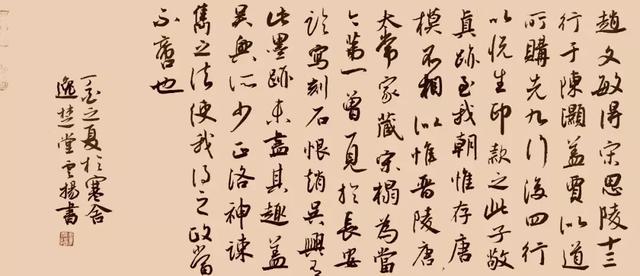 趙文敏得宋思陵十三
行于陳灝蓋賈似道
所購先九行後四行
以悅生印款之此子敬
真跡至我朝惟存唐
模不相似惟晉陵唐
太常家藏宋榻為當
今第一曾見於長安
臨寫刻石恨趙吳興有
此墨跡未盡其趣蓋
吳興所少正洛神疎
雋之法使我得之政當
不啻也
丁酉之夏於寒舍
逸楚堂云揚書